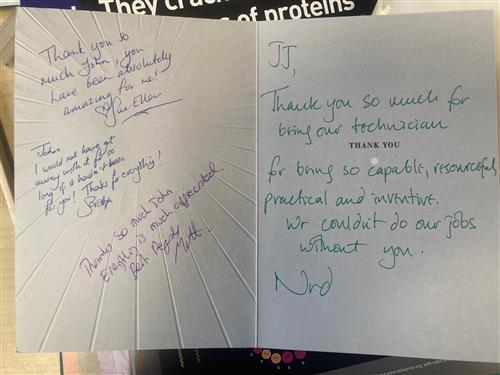 They crac
s of proteins
Thank you so
much John, you
have been absolutely
amazing for me!
Sue-Ellen
John
I would not have got
away with it for so
long if it hadn't been
for you! Thanks for everything!
Thanks so much John
Everything is much appreciated
Best Regards
Matt
JJ,
Thank you so much for
being our technician
THANK YOU
for being so capable, resourceful,
practical and inventive.
We couldn't do our jobs
without you.